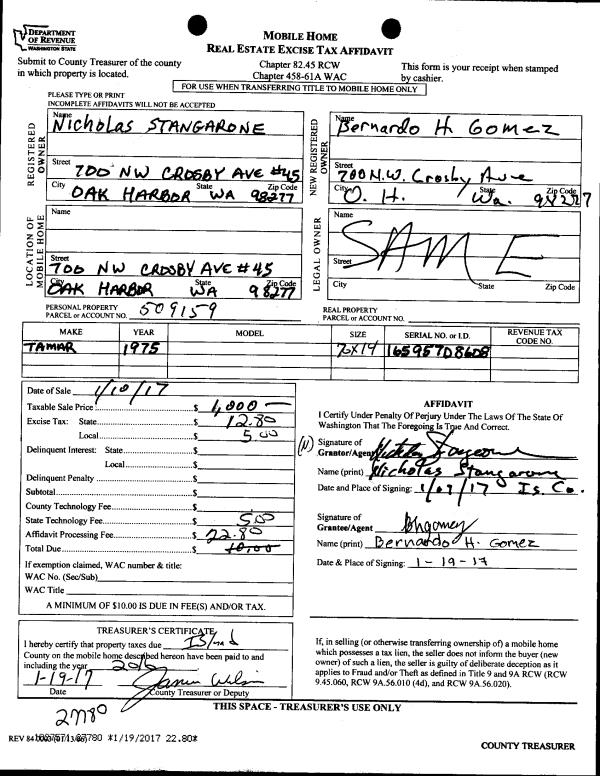 DEPARTMENT
OF REVENUE
WASHINGTON STATE
MOBILE HOME
REAL ESTATE EXCISE TAX AFFIDAVIT
Submit to County Treasurer of the county
in which property is located.
Chapter 82.45 RCW
Chapter 458-61A WAC
This form is your receipt when stamped
by cashier.
FOR USE WHEN TRANSFERRING TITLE TO MOBILE HOME ONLY
PLEASE TYPE OR PRINT
INCOMPLETE AFFIDAVITS WILL NOT BE ACCEPTED
REGISTERED
OWNER
Name
Nicholas STANGARONE
Street
700 NW CROSBY AVE #45
City State Zip Code
OAK HARBOR WA 98277
NEW REGISTERED
OWNER
Name
Bernardo H. Gomez
Street
700 N.W. Crosby Ave
City State Zip Code
O. H. Wa. 98277
LOCATION OF
MOBILE HOME
Name
Street
700 NW CROSBY AVE #45
City State Zip Code
OAK HARBOR WA 98277
LEGAL OWNER
Name
SAME
Street
City State Zip Code
PERSONAL PROPERTY
PARCEL or ACCOUNT NO. 509159
REAL PROPERTY
PARCEL or ACCOUNT NO.
MAKE YEAR MODEL SIZE SERIAL NO. or I.D. REVENUE TAX CODE NO.
TAMAR 1975 14 165957D8608
Date of Sale 1/10/17
Taxable Sale Price $ 1,000
Excise Tax: State $ 12.80
Local $ 5.00
Delinquent Interest: State $
Local $
Delinquent Penalty $
Subtotal $
County Technology Fee $
State Technology Fee $ 5.00
Affidavit Processing Fee $ 22.80
Total Due $ 10.00
If exemption claimed, WAC number & title:
WAC No. (Sec/Sub)
WAC Title
A MINIMUM OF $10.00 IS DUE IN FEE(S) AND/OR TAX.
AFFIDAVIT
I Certify Under Penalty Of Perjury Under The Laws Of The State Of
Washington That The Foregoing Is True And Correct.
(N)
Signature of
Grantor/Agent
Name (print) Nicholas Stangarone
Date and Place of Signing: 1/09/17 Is. Co.
Signature of
Grantee/Agent Bhgomez
Name (print) Bernardo H. Gomez
Date & Place of Signing: 1-19-17
TREASURER'S CERTIFICATE
I hereby certify that property taxes due Island
County on the mobile home described hereon have been paid to and
including the year 2016
1-19-17
Date County Treasurer or Deputy
If, in selling (or otherwise transferring ownership of) a mobile home
which possesses a tax lien, the seller does not inform the buyer (new
owner) of such a lien, the seller is guilty of deliberate deception as it
applies to Fraud and/or Theft as defined in Title 9 and 9A RCW (RCW
9.45.060, RCW 9A.56.010 (4d), and RCW 9A.56.020).
THIS SPACE - TREASURER'S USE ONLY
REV 84 *1/19/2017 22.80*
COUNTY TREASURER